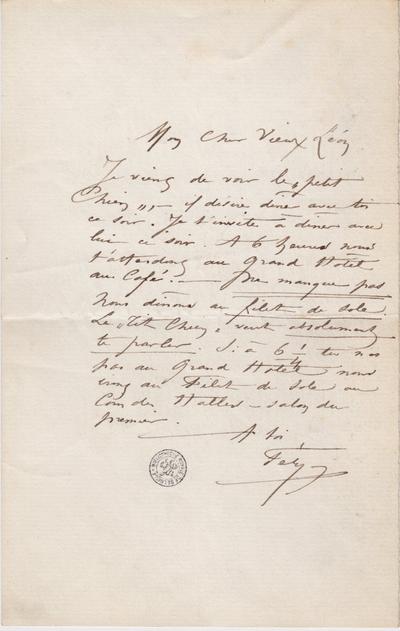 Mon Cher Vieux Léon
Je viens de voir le "petit
Chien" — il désire dîner avec toi
ce soir. Je t'invite à dîner avec
lui ce soir. A 6 heures nous
t'attendons au Grand Hotel
au Café. — Ne manque pas
Nous dinons au filet de sole.
Le "Tit Chien" veut absolument
te parler. Si à 6 1/4 tu nes
pas au Grand Hotel nous
au Filet de Sole au
Coin des Halles — salon du
premier.
A toi